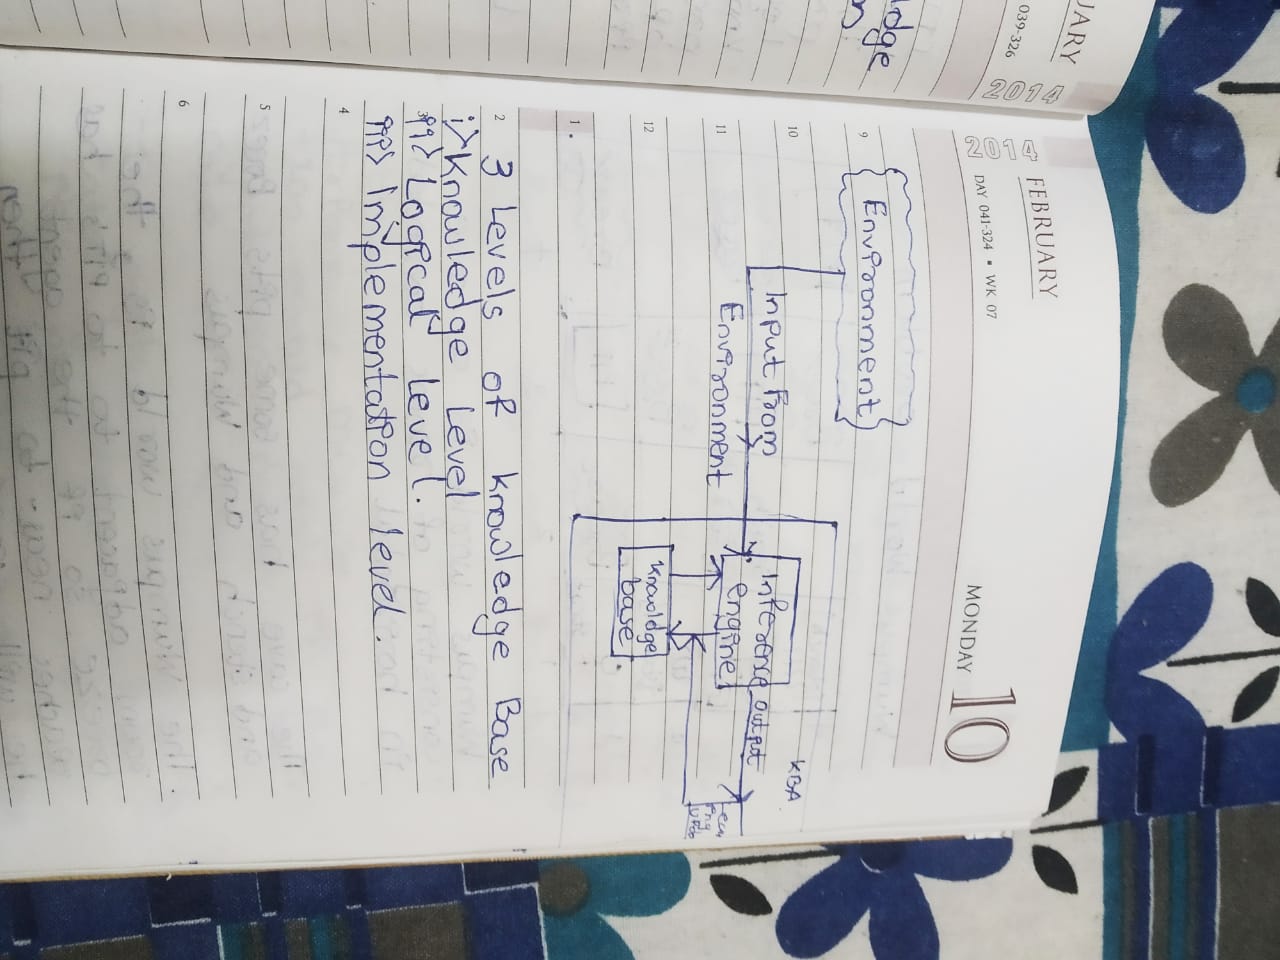 UARY
2014
039-326
ldge
2014
FEBRUARY
DAY 041-324 ▪ WK 07
MONDAY 10
9
Environment
10
KBA
Input From
Inference output
11
Environment
engine
12
knowldge
base
1
2
3 Levels of knowledge Base
i> Knowledge Level
3
ii> Logical Level.
iii> Implementation level.
4
5
6